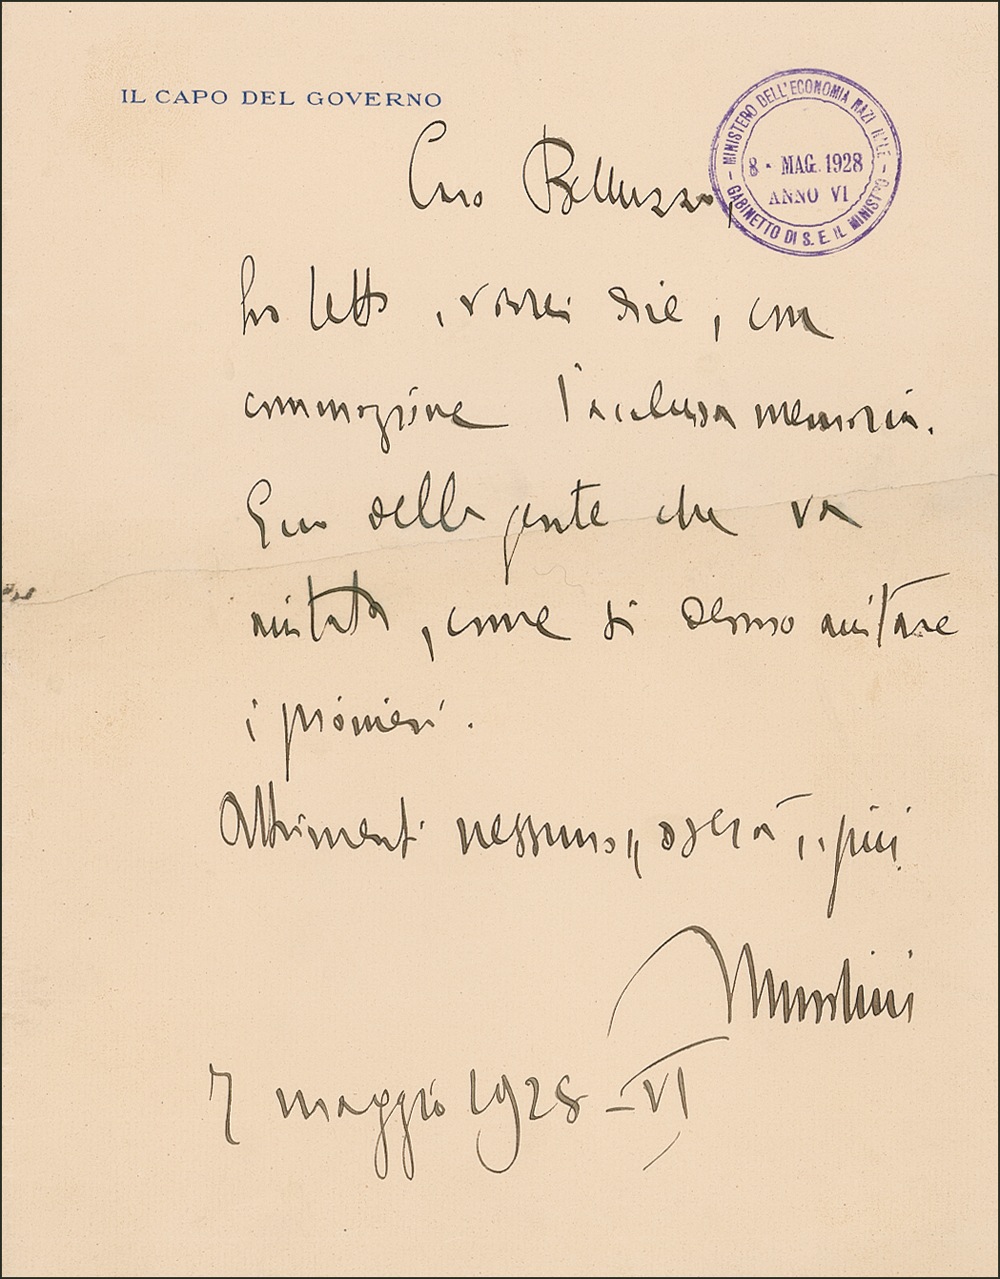 IL CAPO DEL GOVERNO
MINISTERO DELL'ECONOMIA NAZI N'LE - GABINETTO DI S. E. IL MINISTRO -
8 - MAG. 1928
ANNO VI
Caro Belluzzo,
ho letto, vorrei dire, con
commozione l'acclusa memoria.
Ecco della gente che va
aiutata, come si devono aiutare
i pionieri.
Altrimenti nessuno „ oserà „ più
Mussolini
7 maggio 1928 - VI